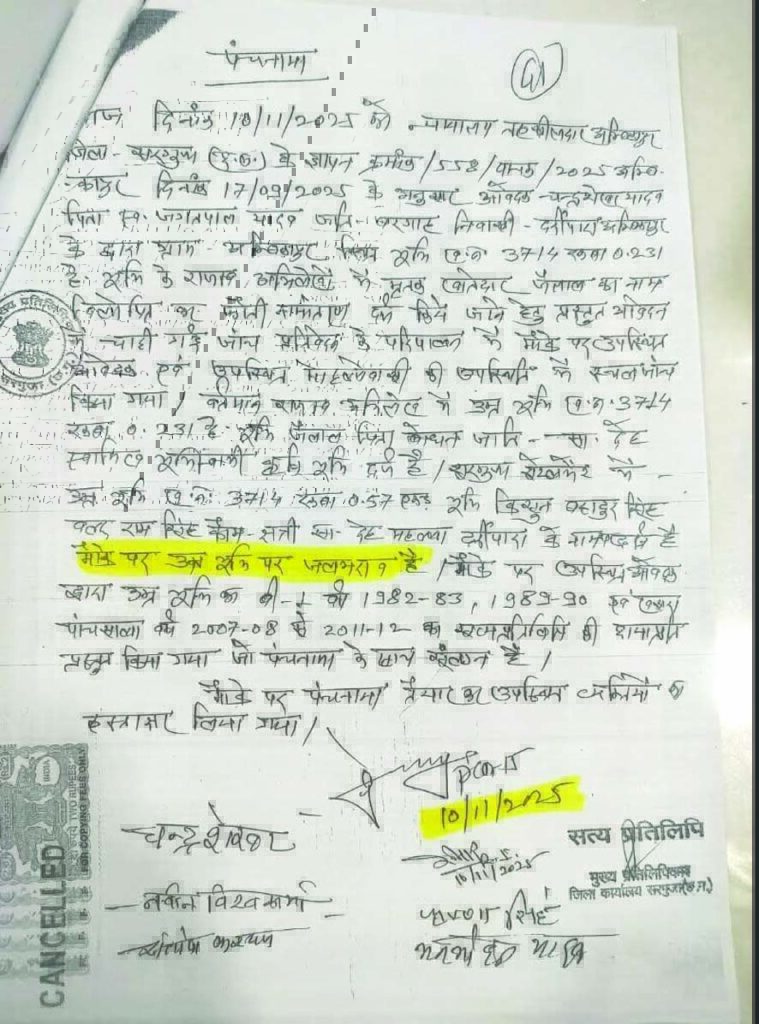 पंचनामा
आज दिनांक 10/11/2025 को न्यायालय तहसीलदार अम्बिकापुर
जिला - सरगुजा (छ.ग.) के ज्ञापन क्रमांक/558/वाचक/2025 अम्बि-
-कापुर दिनांक 17/09/2025 के अनुसार आवेदक चन्द्रशेखर यादव
पिता स्व. जगतपाल यादव जाति - बरगाह निवासी - दर्रीपारा अम्बिकापुर
के द्वारा ग्राम - अम्बिकापुर स्थित भूमि ख.नं. 3714 रकबा 0.231
हे. भूमि के राजस्व अभिलेखों में मृतक खातेदार जैलाल का नाम
विलोपित कर फौती नामांतरण दर्ज किये जाने हेतु प्रस्तुत आवेदन
में चाही गई जांच प्रतिवेदन के परिपालन में मौके पर उपस्थित
आवेदक एवं उपस्थित की उपस्थिति में स्थल जांच
किया गया। वर्तमान राजस्व अभिलेख में उक्त भूमि ख.नं. 3714
रकबा 0.231 हे. भूमि जैलाल पिता जाति - सा. देह
स्वामित्व भूमिस्वामी कृषि भूमि दर्ज है। सरगुजा सेटलमेंट में -
उक्त भूमि ख.नं. 3714 रकबा 0.57 एकड़ भूमि बहादुर सिंह
वल्द राम सिंह कौम - सा. देह महल्ला दर्रीपारा के नाम पर दर्ज है
मौके पर उक्त भूमि पर जलभराव है। मौके पर उपस्थित आवेदक
द्वारा उक्त भूमि का बी-1 वर्ष 1982-83, 1989-90 एवं खसरा
पांचसाला वर्ष 2007-08 से 2011-12 का सत्यप्रतिलिपि की छायाप्रति
प्रस्तुत किया गया जो पंचनामा के साथ संलग्न है।
मौके पर पंचनामा तैयार कर उपस्थित व्यक्तियों का
हस्ताक्षर लिया गया।
10/11/2025
चन्द्रशेखर
10/11/2025
सत्य प्रतिलिपि
मुख्य प्रतिलिपिकार
जिला कार्यालय सरगुजा (छ.ग.)
नवीन विश्वकर्मा
सिंह
CANCELLED
INDIA
FOR COPYING FEES ONLY